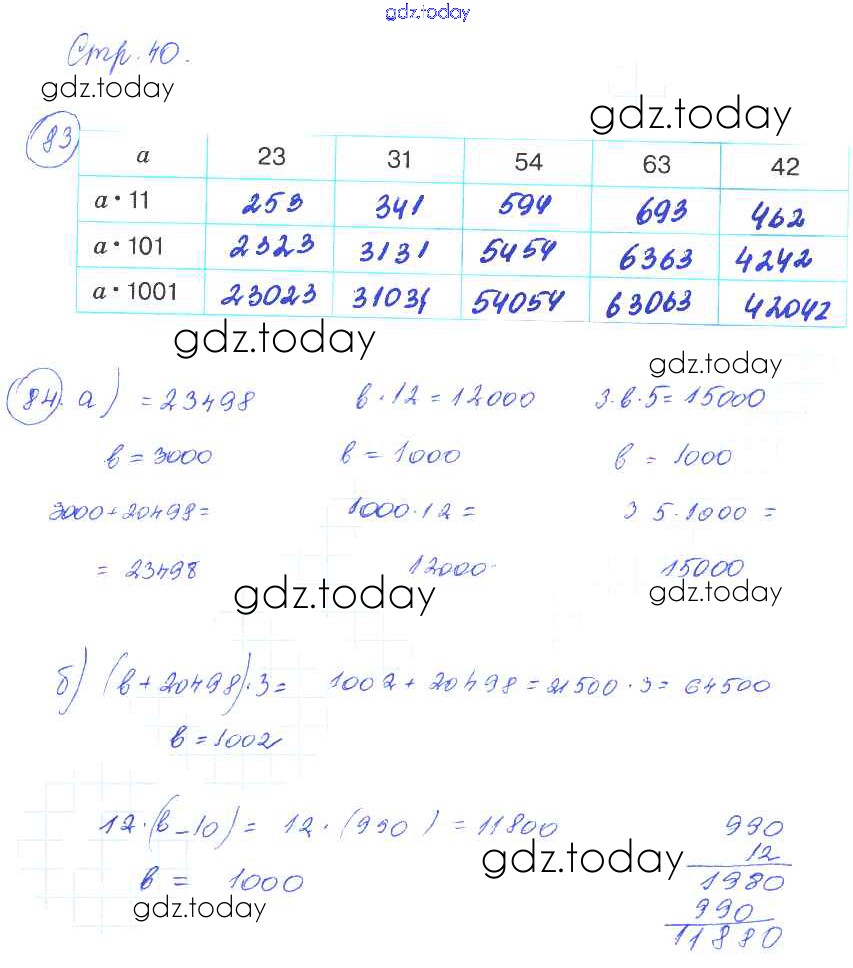 gdz.today
Стр. 40.
gdz.today
gdz.today
83
a 23 31 54 63 42
a · 11 253 341 594 693 462
a · 101 2323 3131 5454 6363 4242
a · 1001 23023 31031 54054 63063 42042
gdz.today
gdz.today
84. а) = 23498 в · 12 = 12000 3 · в · 5 = 15000
в = 3000 в = 1000 в = 1000
3000 + 20498 = 1000 · 12 = 3 5 · 1000 =
= 23498 12000 15000
gdz.today
gdz.today
б) (в + 20498) · 3 = 1002 + 20498 = 21500 · 3 = 64500
в = 1002
12 · (в – 10) = 12 · (990) = 11800
990
12
gdz.today
в = 1000
1980
gdz.today
990
11880